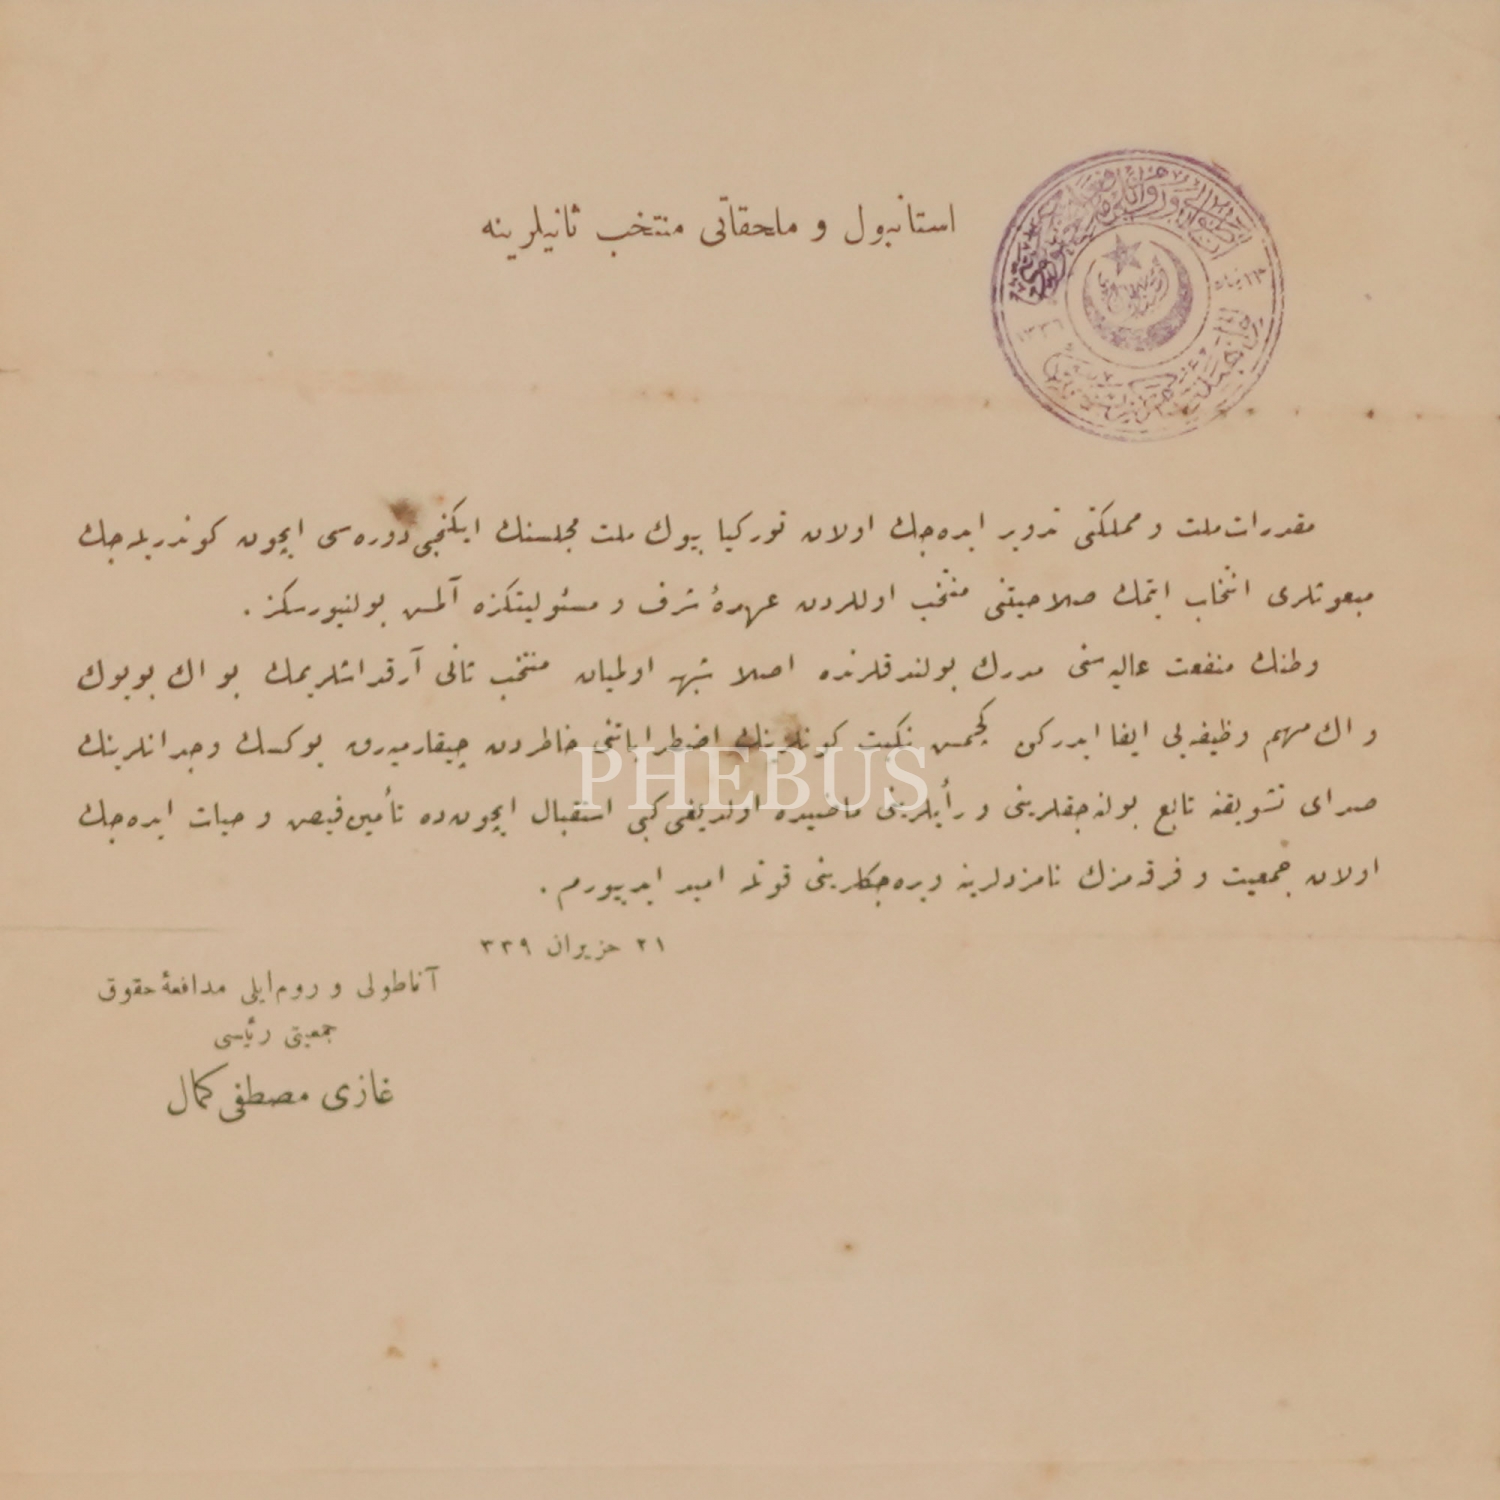 استانبول و ملحقاتی منتخب ثانیلرینه
مقدرات ملت و مملكتی تدویر ایده‌جك اولان توركیا بیوك ملت مجلسنك ایكنجی دوره‌سی ایچون كوندریله‌جك
مبعوثلری انتخاب ایتمك صلاحیتنی منتخب اوللردن عهدهٔ شرف و مسئولیتكزه آلمش بولنیورسكز .
وطنك منفعت عالیه‌سنی مدرك بولندقلرنده اصلا شبهه اولمیان منتخب ثانی آرقداشلریمك بو اك بویوك
و اك مهم وظیفه‌یی ایفا ایدركن كچمش نكبت كونلرینك اضطراباتنی خاطردن چیقارمیه‌رق یوكسك وجدانلرینك
صدای تشویقنه تابع بولنه‌جقلرینی و رأیلرینی ماضیده اولدیغی كبی استقبال ایچون‌ده تأمین فیض و حیات ایده‌جك
اولان جمعیت و فرقه‌مزك نامزدلرینه ویره‌جكلرینی قوتله امید ایدییورم .
٢١ حزیران ٣٣٩
آناطولی و روم‌ایلی مدافعهٔ حقوق
جمعیتی رئیسی
غازی مصطفی كمال
PHEBUS